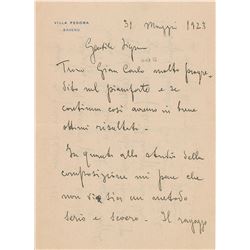 VILLA FEDORA
BAVENO
31 Maggio 1923
Gentile Signora
Trovo Gian Carlo molto progre-
dito nel pianoforte e se
continua così avremo in breve
ottimi risultati.
In quanto allo studio della
composizione mi pare che
non vi sia un metodo
serio e severo. Il ragazzo